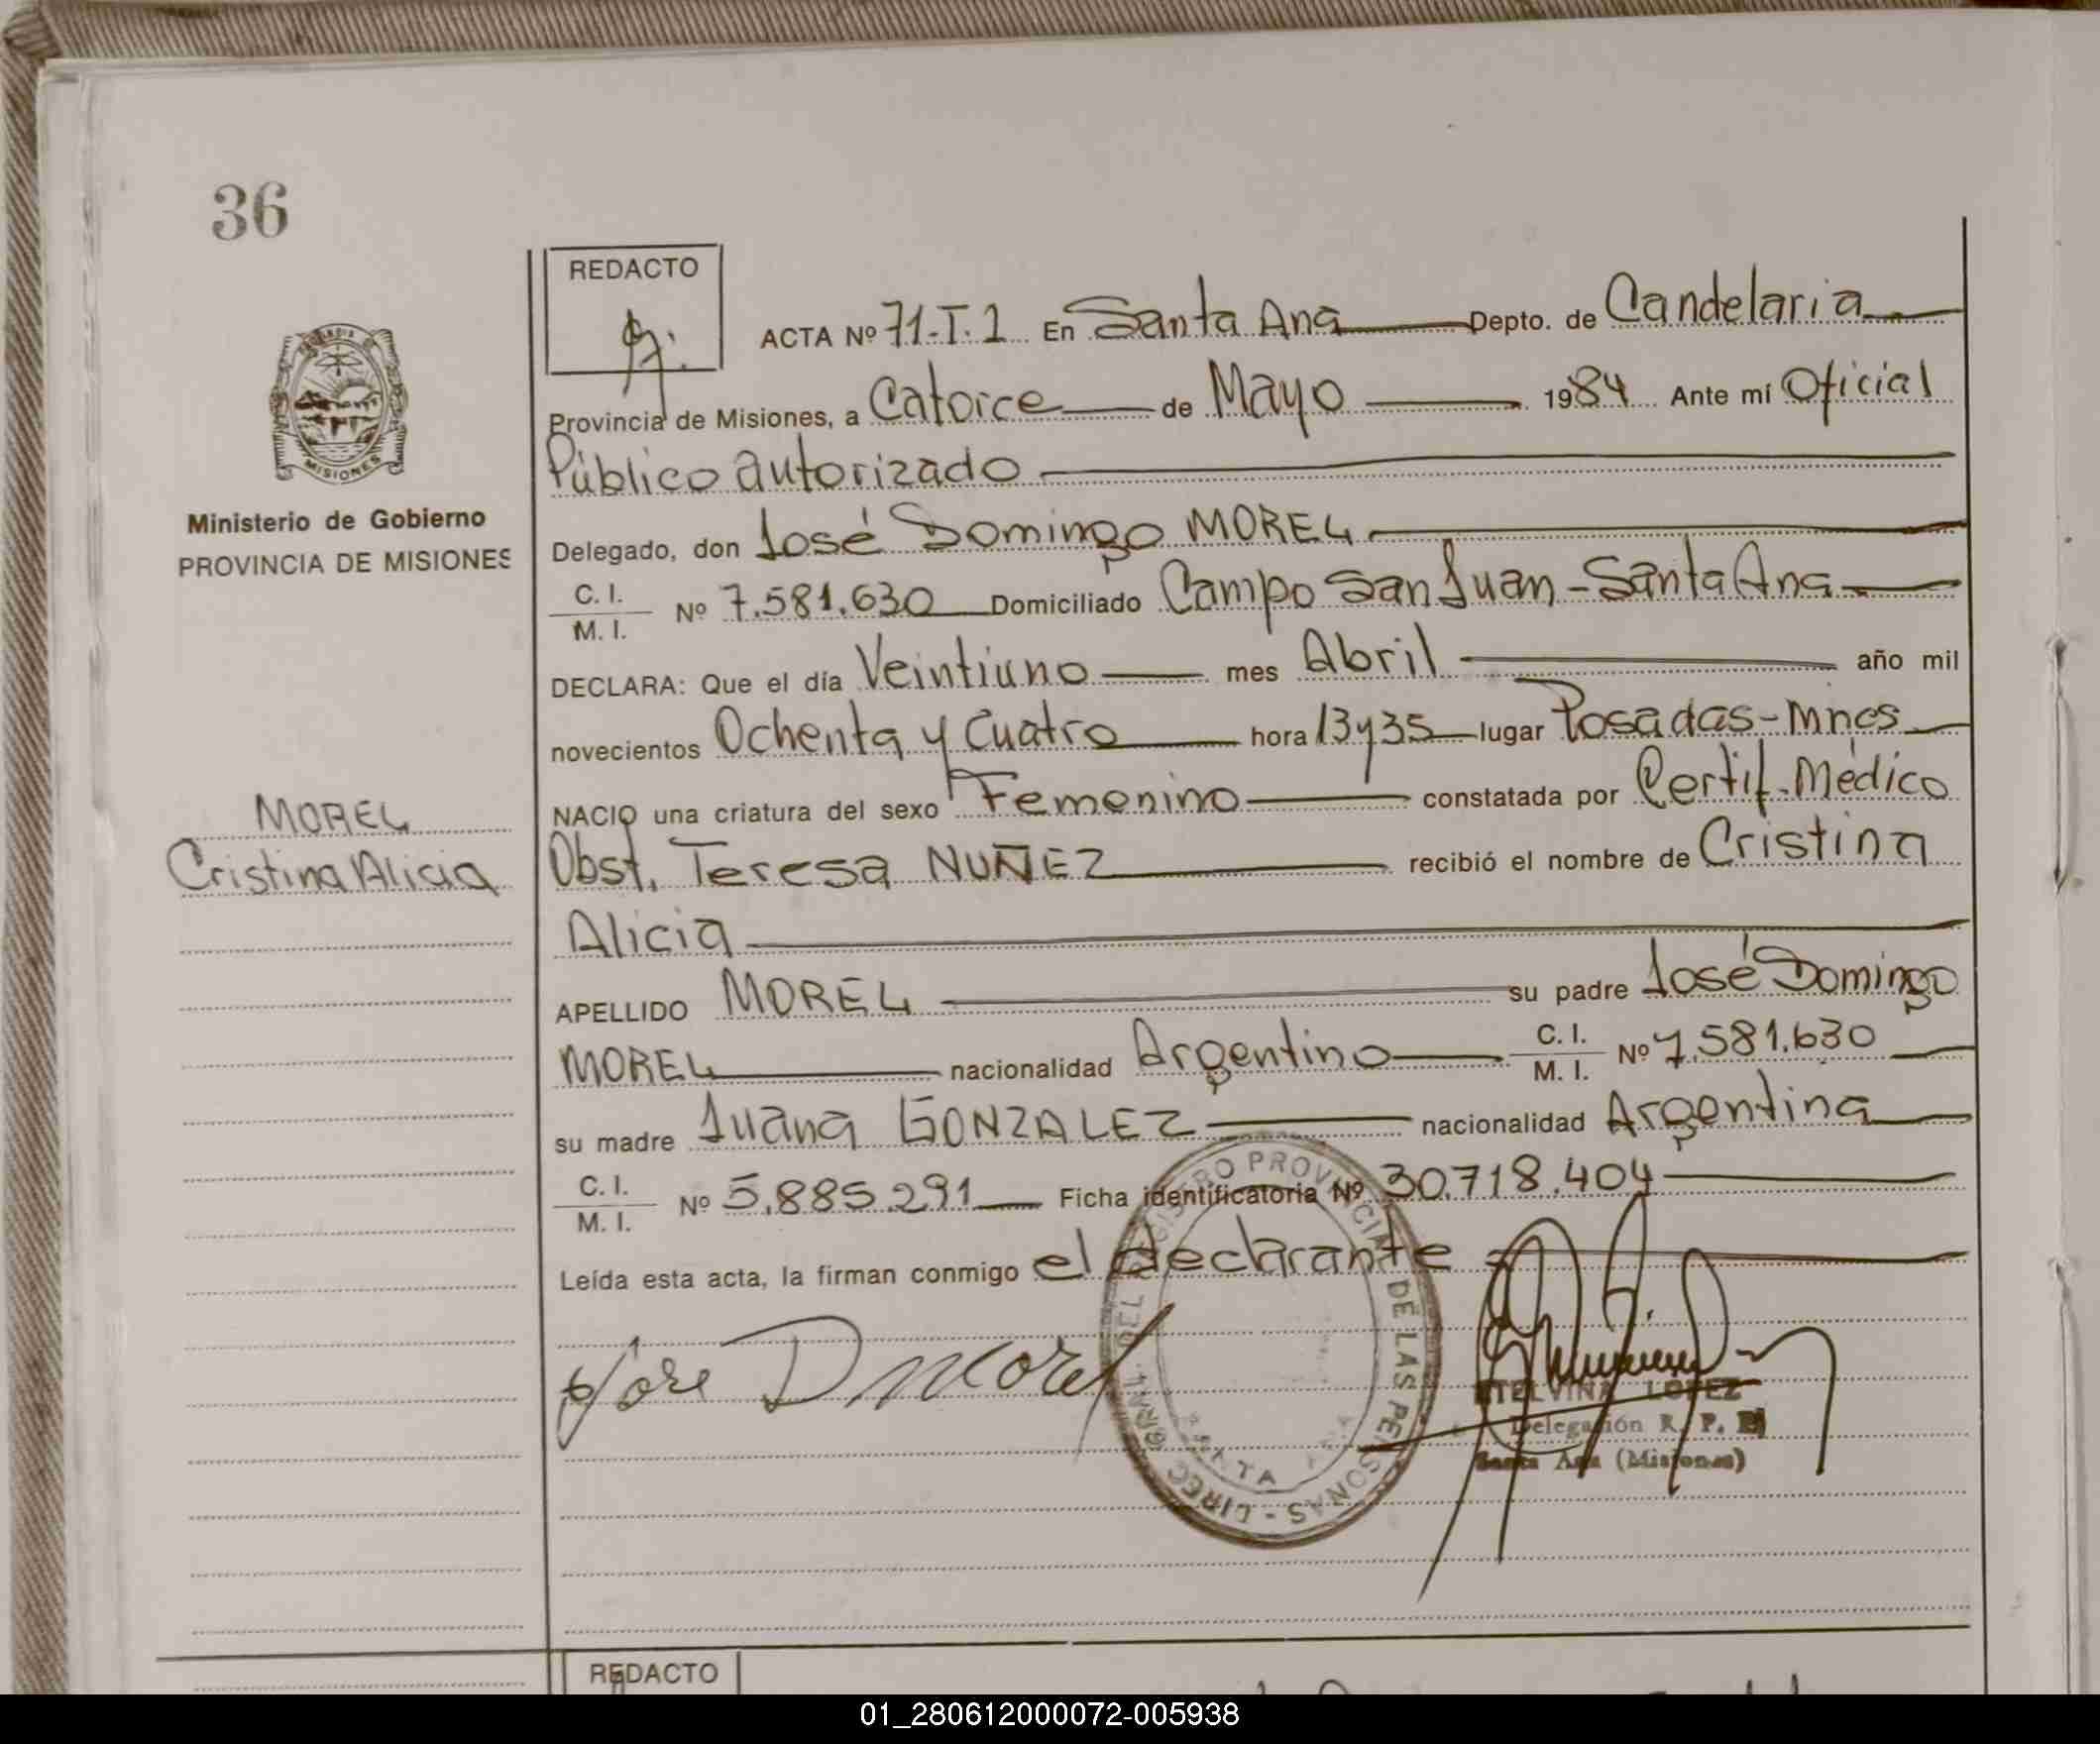 36
REDACTO
ACTA Nº 71-T.1 En Santa Ana Depto. de Candelaria
Provincia de Misiones, a Catorce de Mayo 1984 Ante mí Oficial
Público autorizado
Delegado, don José Domingo MOREL
C. I.
M. I. Nº 7.581.630 Domiciliado Campo San Juan - Santa Ana
DECLARA: Que el día Veintiuno mes Abril año mil
novecientos Ochenta y Cuatro hora 13 y 35 lugar Posadas - Mnes
NACIO una criatura del sexo Femenino constatada por Certif. Médico
Obst. Teresa NUÑEZ recibió el nombre de Cristina
Alicia
APELLIDO MOREL su padre José Domingo
MOREL nacionalidad Argentino C. I. M. I. Nº 7.581.630
su madre Juana GONZALEZ nacionalidad Argentina
C. I.
M. I. Nº 5.885.291 Ficha identificatoria Nº 30.718.404
Leída esta acta, la firman conmigo el declarante
Jose D Morel
DIREC. GRAL. DEL REGISTRO PROVINCIAL DE LAS PERSONAS
ETELVINA LOPEZ
Delegación R. P. P.
Santa Ana (Misiones)
MISIONES
Ministerio de Gobierno
PROVINCIA DE MISIONES
MOREL
Cristina Alicia
REDACTO
01_280612000072-005938